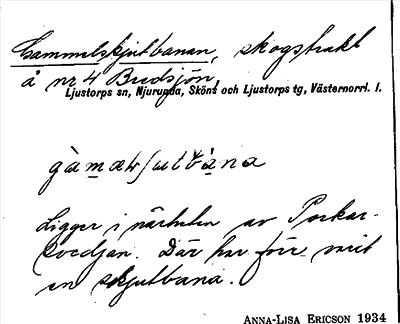 Gammelskjutbanan, skogstrakt
å nr 4 Bredsjön,
Ljustorps sn, Njurunda, Sköns och Ljustorps tg, Västernorrl. l.
Ligger i närheten av Porkar-
svedjan. Där har förr varit
en skjutbana.
ANNA-LISA ERICSON 1934